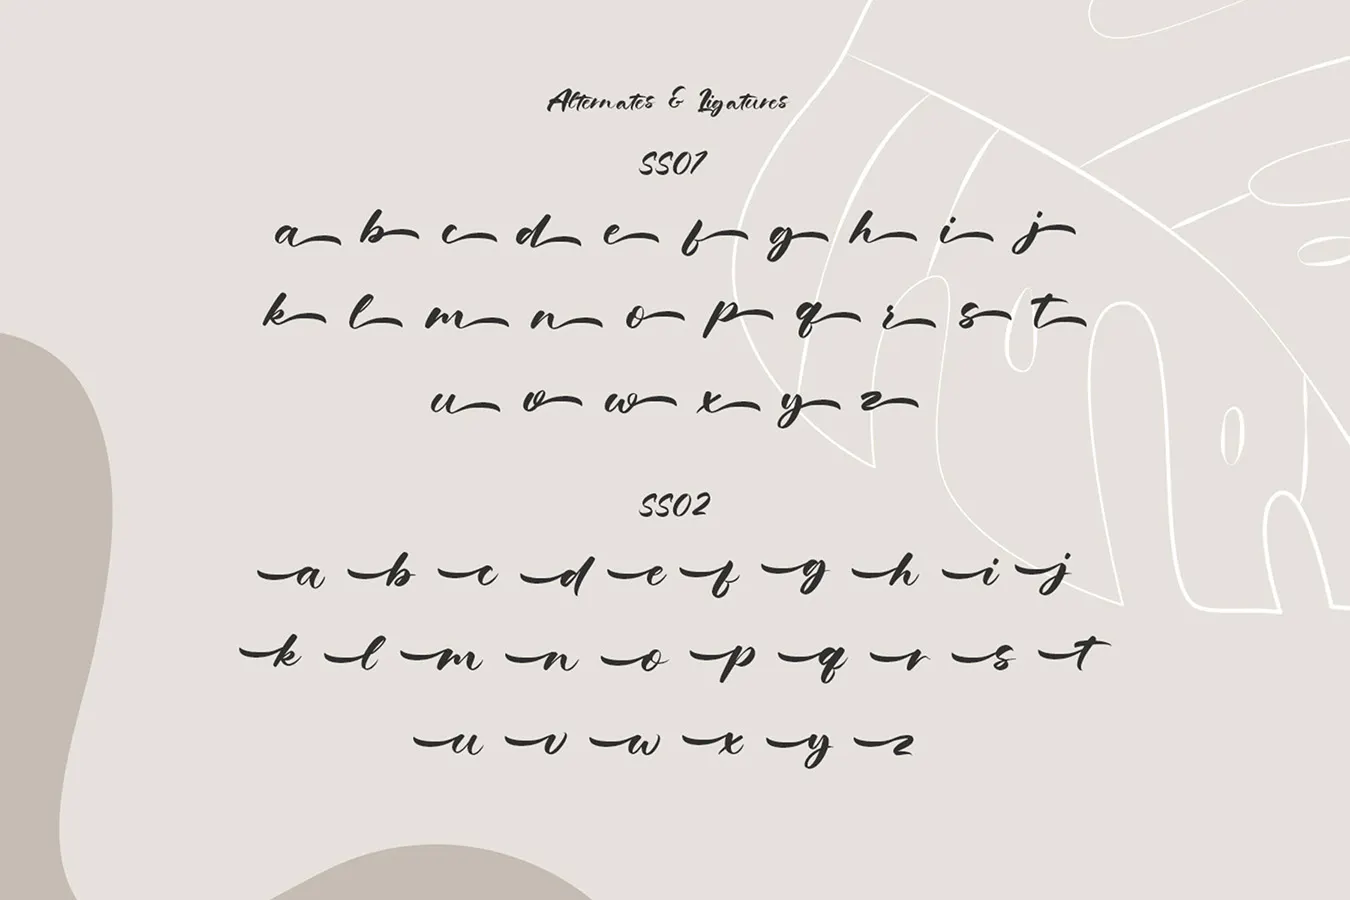 Alternates & Ligatures
SS01
a b c d e f g h i j
k l m n o p q r s t
u v w x y z
SS02
a b c d e f g h i j
k l m n o p q r s t
u v w x y z